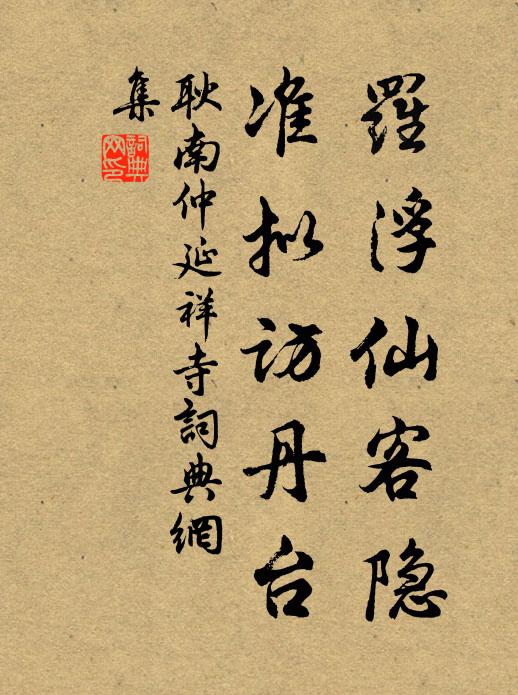 羅浮仙客隐
准拟訪丹台
耿南仲延祥寺詞典網
集
詞典
网印